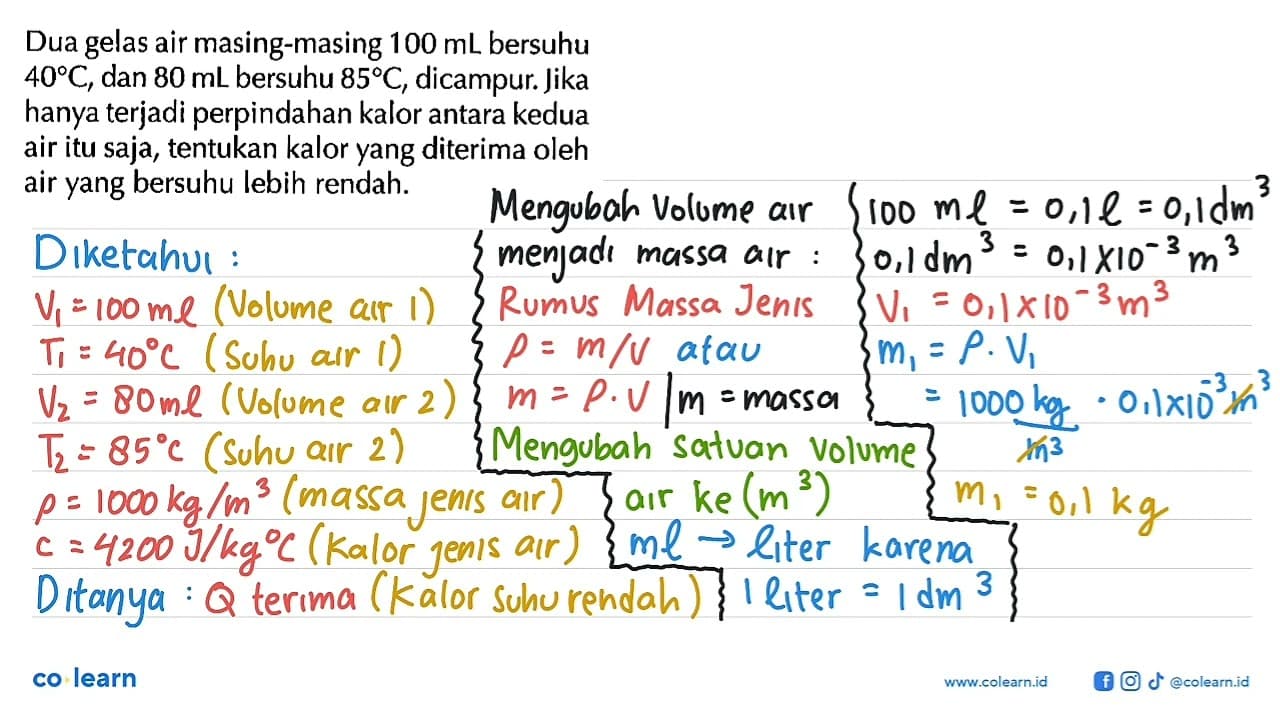 Dua gelas air masing-masing 100 mL bersuhu
40°C, dan 80 mL bersuhu 85°C, dicampur. Jika
hanya terjadi perpindahan kalor antara kedua
air itu saja, tentukan kalor yang diterima oleh
air yang bersuhu lebih rendah.
Diketahui :
V₁ = 100 ml (Volume air 1)
T₁ = 40°C (Suhu air 1)
V₂ = 80 ml (Volume air 2)
T₂ = 85°C (Suhu air 2)
ρ = 1000 kg/m³ (massa jenis air)
c = 4200 J/kg°C (Kalor jenis air)
Ditanya : Q terima (Kalor suhu rendah)
Mengubah Volume air
menjadi massa air :
Rumus Massa Jenis
ρ = m/V atau
m = ρ.V | m = massa
Mengubah satuan volume
air ke (m³)
ml → liter karena
1 liter = 1 dm³
100 ml = 0,1 l = 0,1 dm³
0,1 dm³ = 0,1 x 10⁻³ m³
V₁ = 0,1 x 10⁻³ m³
m₁ = ρ . V₁
= 1000 kg/m³ . 0,1 x 10⁻³ m³
m₁ = 0,1 kg
co learn
www.colearn.id
@colearn.id